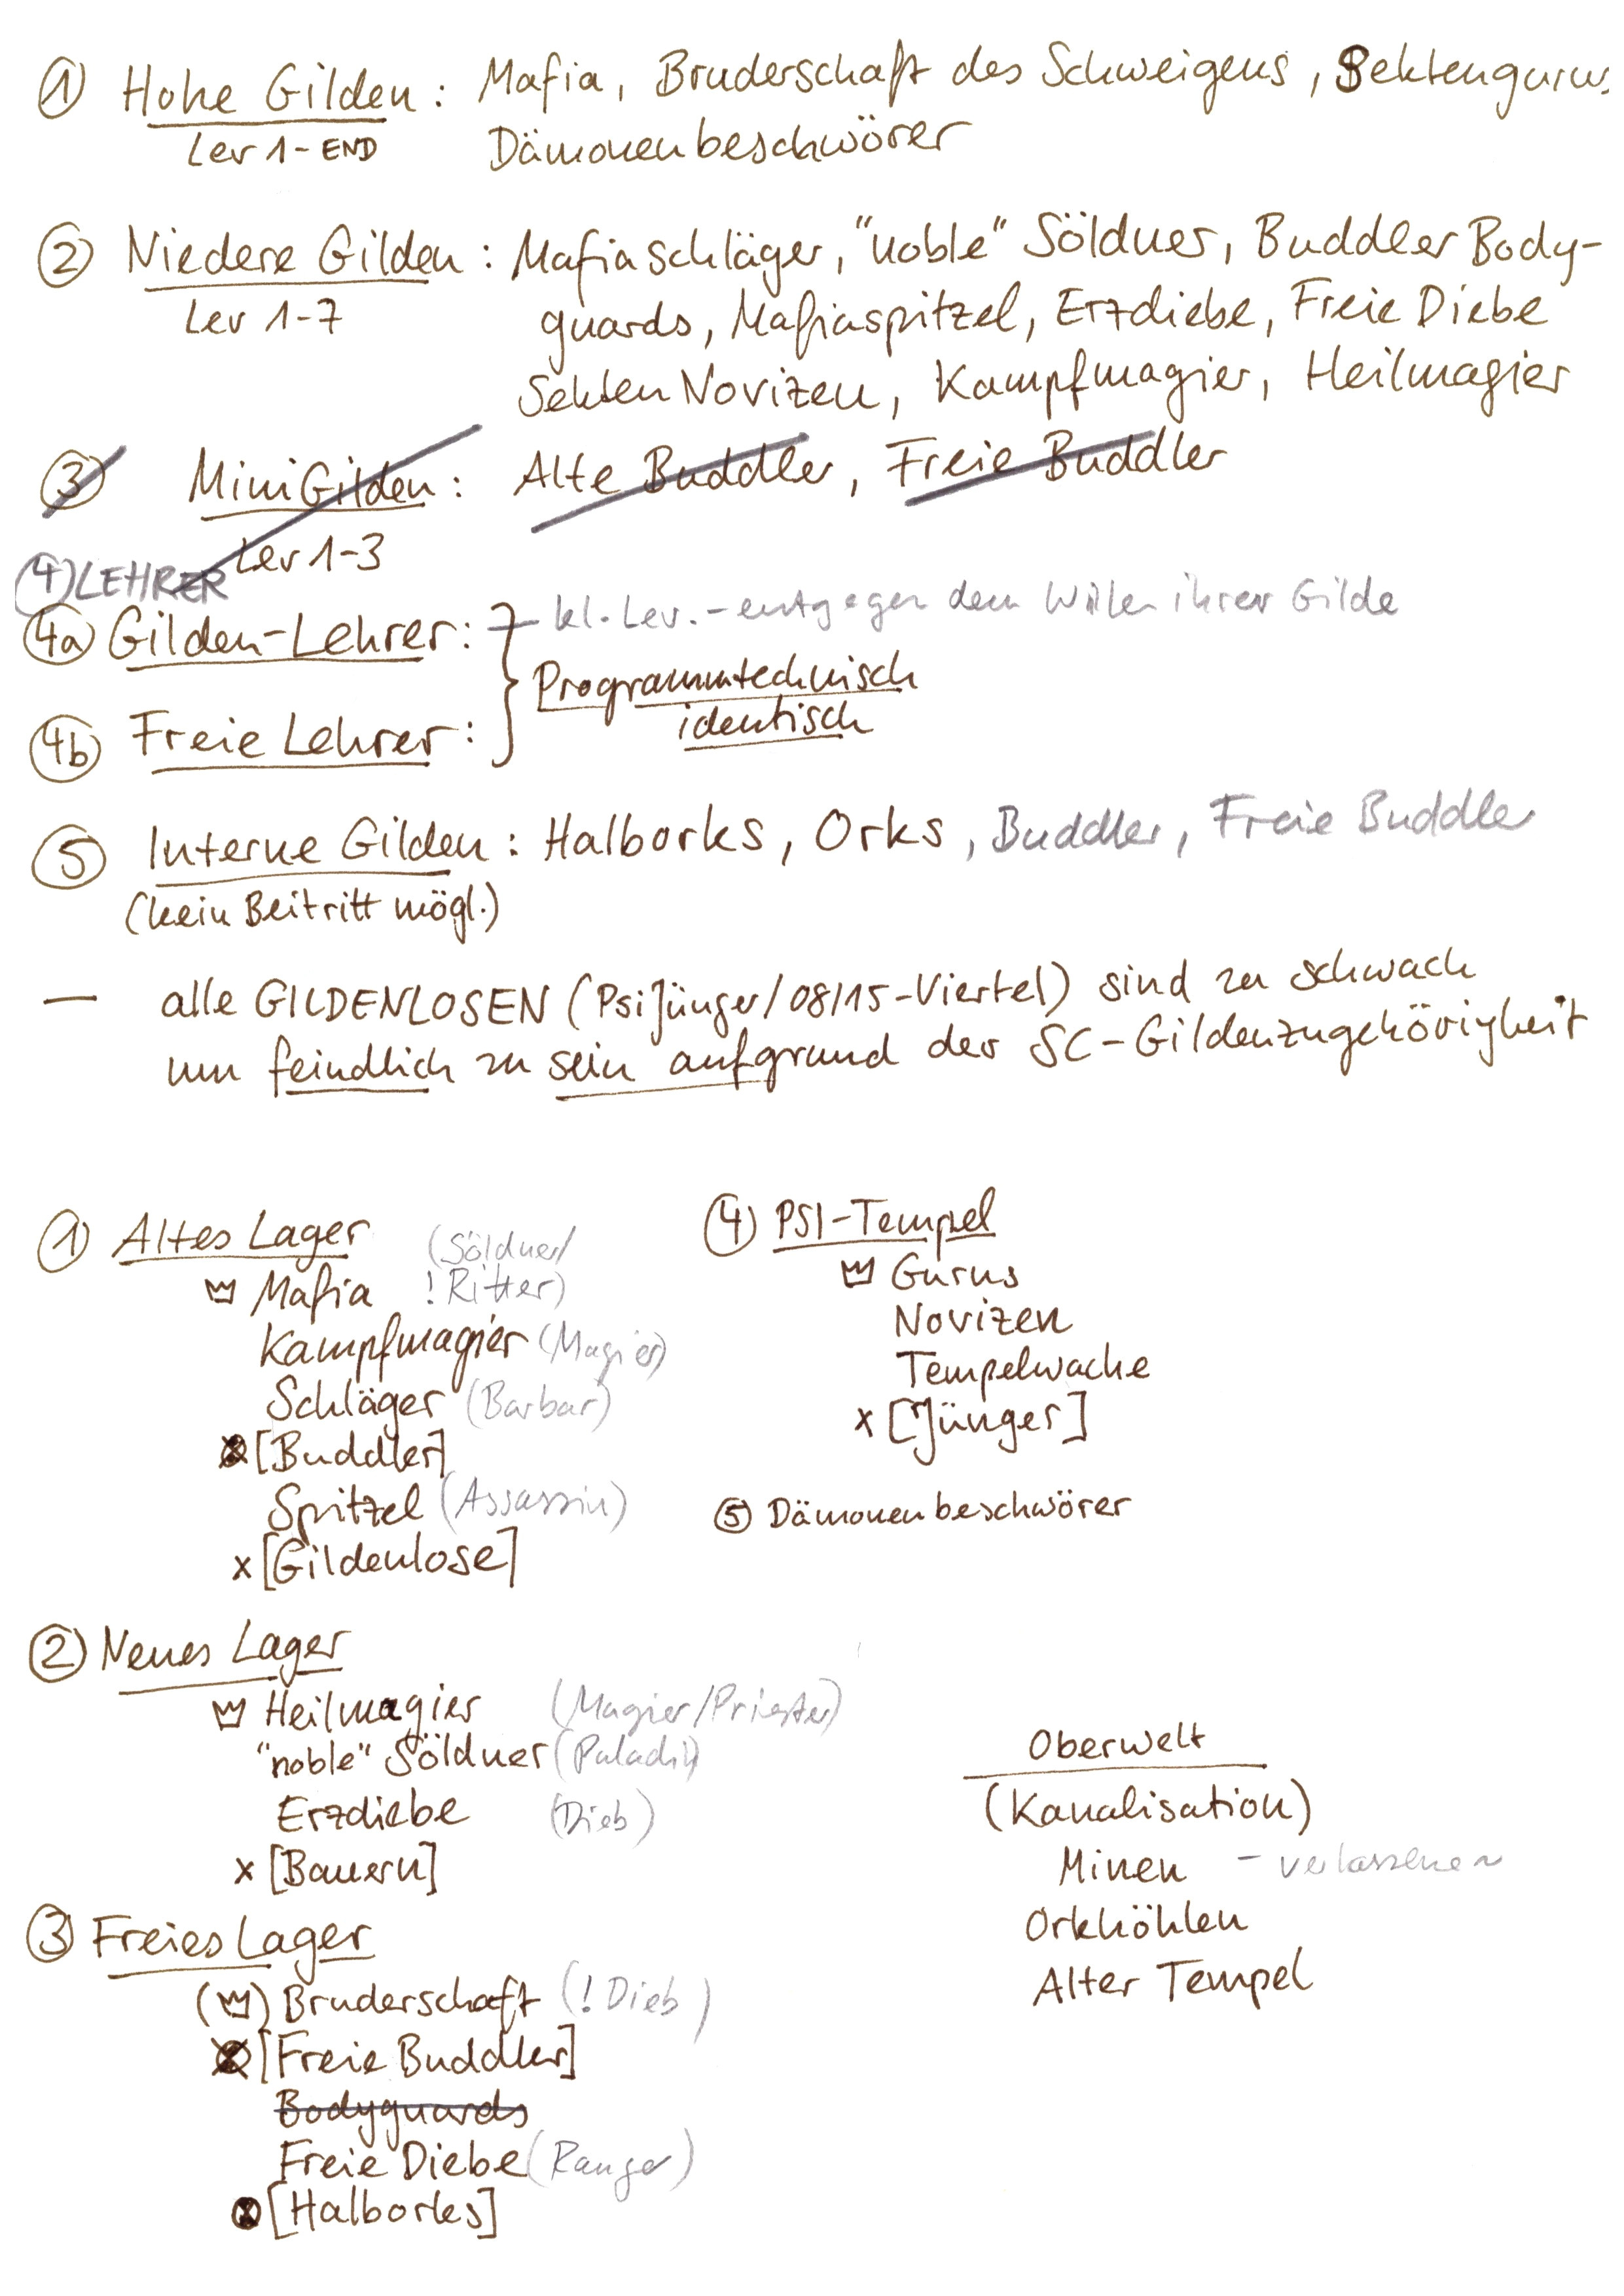 ① Hohe Gilden: Mafia, Bruderschaft des Schweigens, Sektengurus
Lev 1-END Dämonenbeschwörer
② Niedere Gilden: Mafiaschläger, "noble" Söldner, Buddler Body-
Lev 1-7 guards, Mafiaspitzel, Erzdiebe, Freie Diebe
Sekten Novizen, Kampfmagier, Heilmagier
③ MiniGilden: Alte Buddler, Freie Buddler
Lev 1-3
④ LEHRER
4a Gilden-Lehrer: kl. Lev. - entgegen dem Willen ihrer Gilde
Programmtechnisch
identisch
4b Freie Lehrer:
⑤ Interne Gilden: Halborks, Orks, Buddler, Freie Buddler
(kein Beitritt mögl.)
— alle GILDENLOSEN (PsiJünger/08/15-Viertel) sind zu schwach
um feindlich zu sein aufgrund der SC-Gildenzugehörigkeit
① Altes Lager
Mafia (Söldner/
! Ritter)
Kampfmagier (Magier)
Schläger (Barbar)
[Buddler]
Spitzel (Assassin)
x [Gildenlose]
④ PSI-Tempel
Gurus
Novizen
Tempelwache
x [Jünger]
⑤ Dämonenbeschwörer
② Neues Lager
Heilmagier (Magier/Priester)
"noble" Söldner (Paladin)
Erzdiebe (Dieb)
x [Bauern]
③ Freies Lager
Bruderschaft (! Dieb)
[Freie Buddler]
Bodyguards
Freie Diebe (Ranger)
[Halborks]
Oberwelt
(Kanalisation)
Minen - verlassene
Orkhöhlen
Alter Tempel